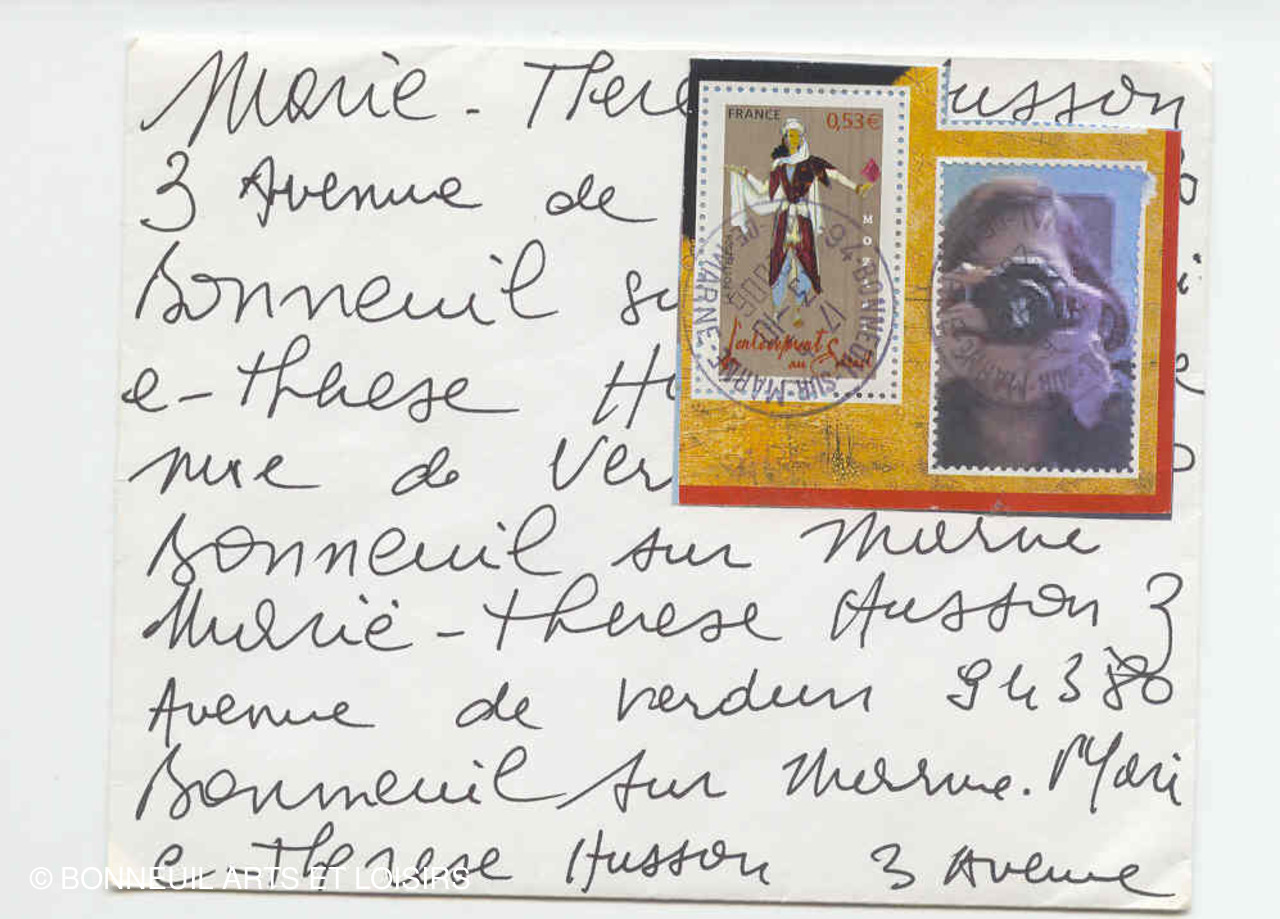 Marie - There usson
3 Avenue de
Bonneuil su
e - therese H
nue de Ver
Bonneuil sur Marne
Marie - therese Husson 3
Avenue de verdun 94380
Bonneuil sur Marne. Mari
e - therese Husson 3 Avenue
FRANCE 0,53€
MON
94 BONNEUIL SUR MARNE
© BONNEUIL ARTS ET LOISIRS